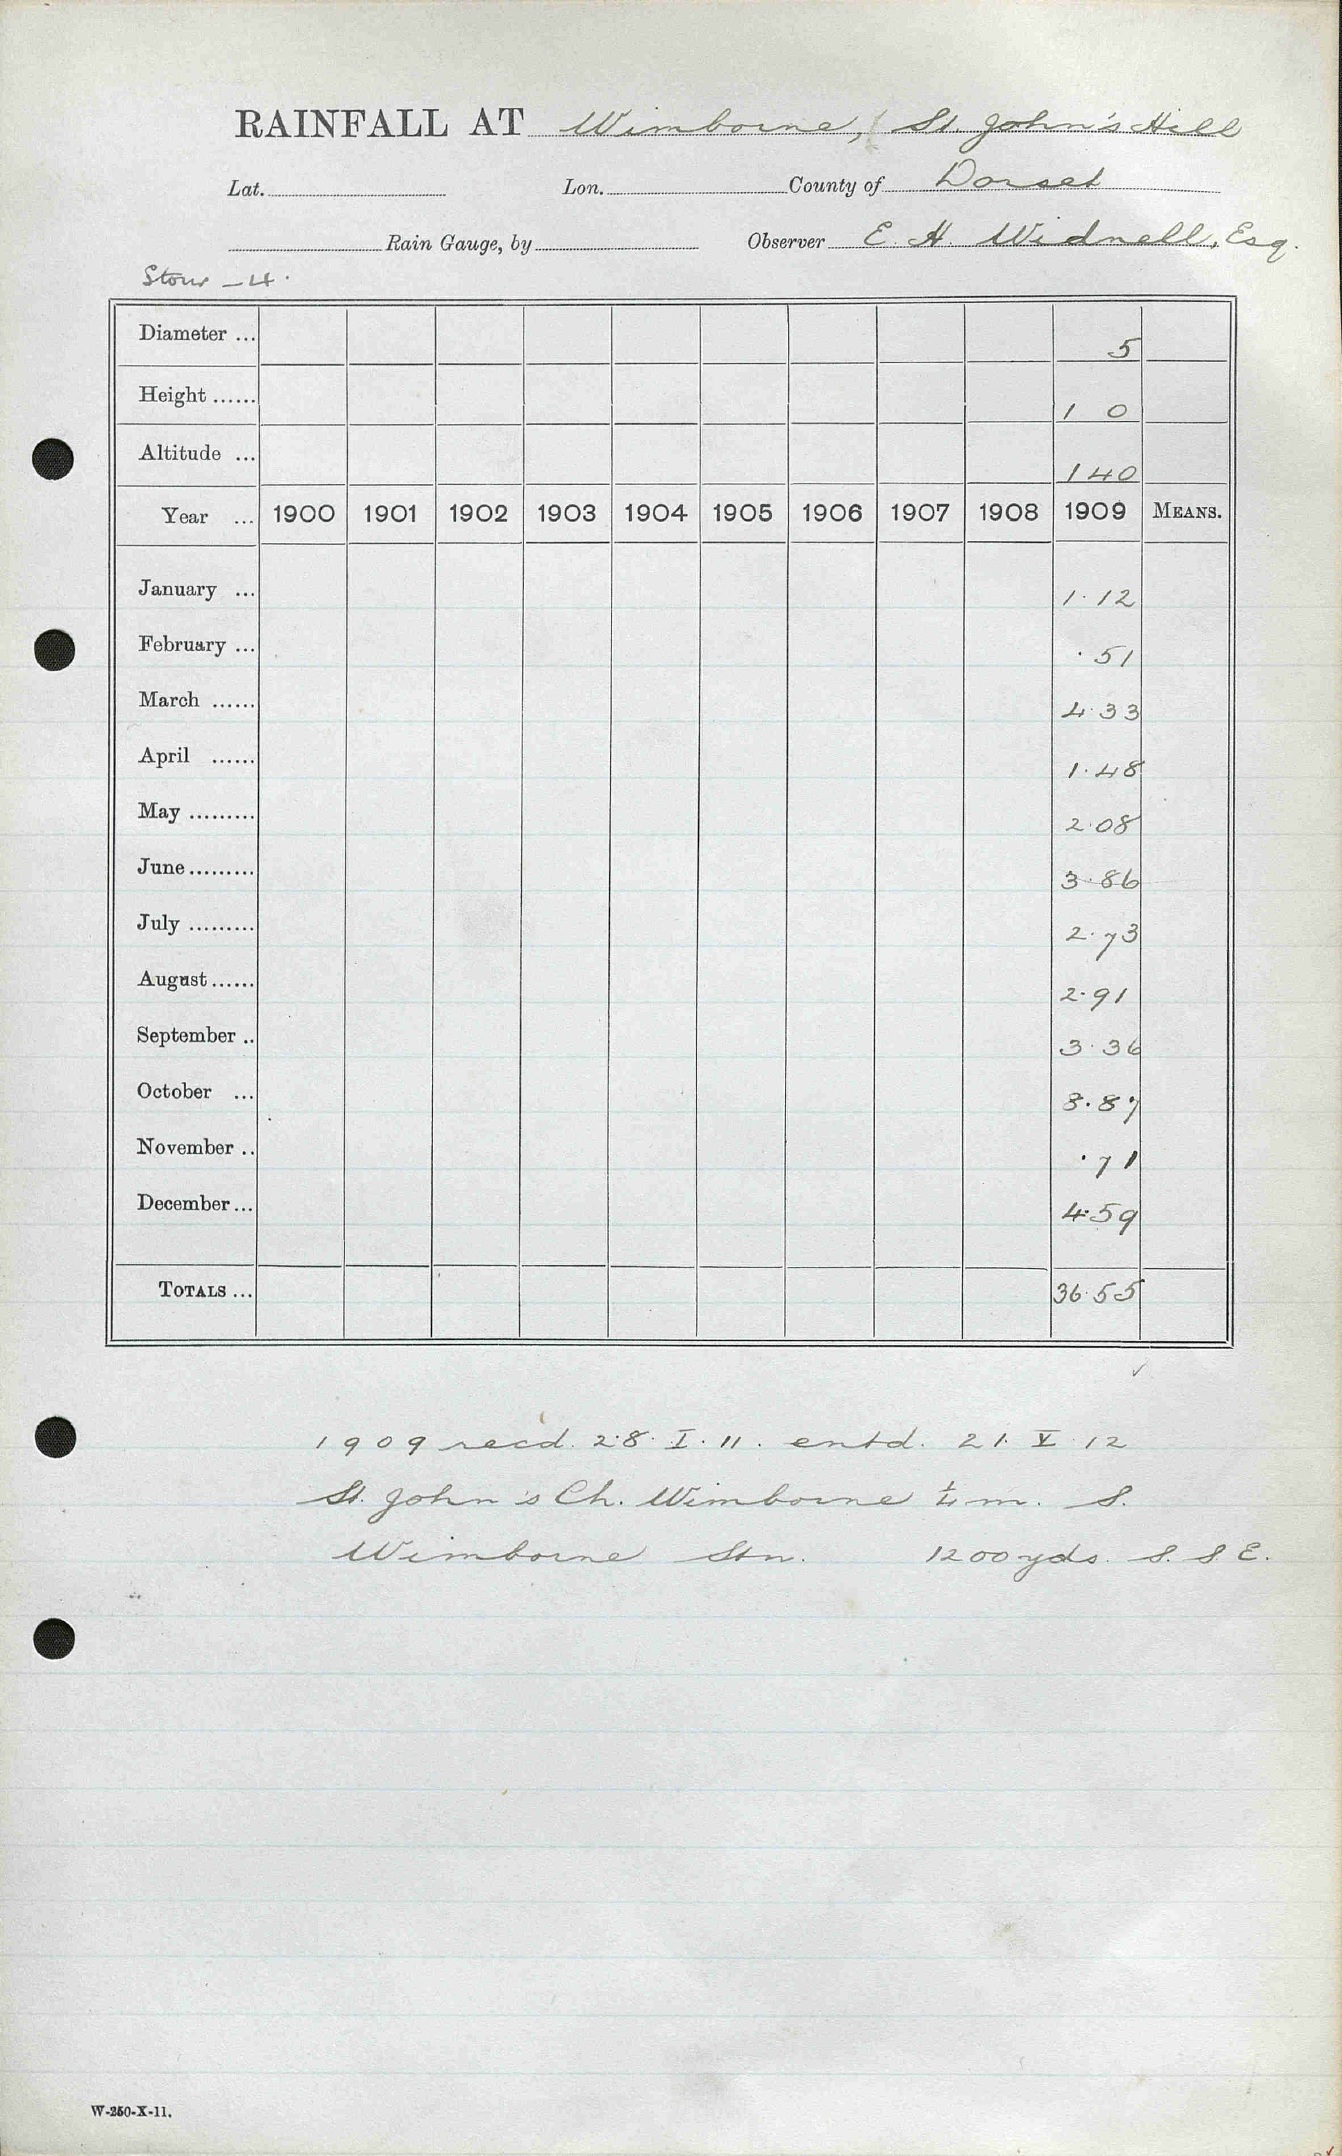 RAINFALL AT Wimborne, St. John's Hill
Lat. Lon. County of Dorset
Rain Gauge, by Observer E. H. Widnell, Esq.
Stour - 4.
Diameter ... 5
Height ...... 1 0
Altitude ... 140
Year ... 1900 1901 1902 1903 1904 1905 1906 1907 1908 1909 MEANS.
January ... 1.12
February ... .51
March ...... 4.33
April ...... 1.48
May ......... 2.08
June......... 3.86
July ......... 2.73
August...... 2.91
September .. 3.36
October ... 8.87
November .. .71
December... 4.59
TOTALS ... 36.55
1909 recd. 28. I. 11. entd. 21. V. 12
St. John's Ch. Wimborne ¼ m. S.
Wimborne Stn. 1200 yds. S. S. E.
W-250-X-11.